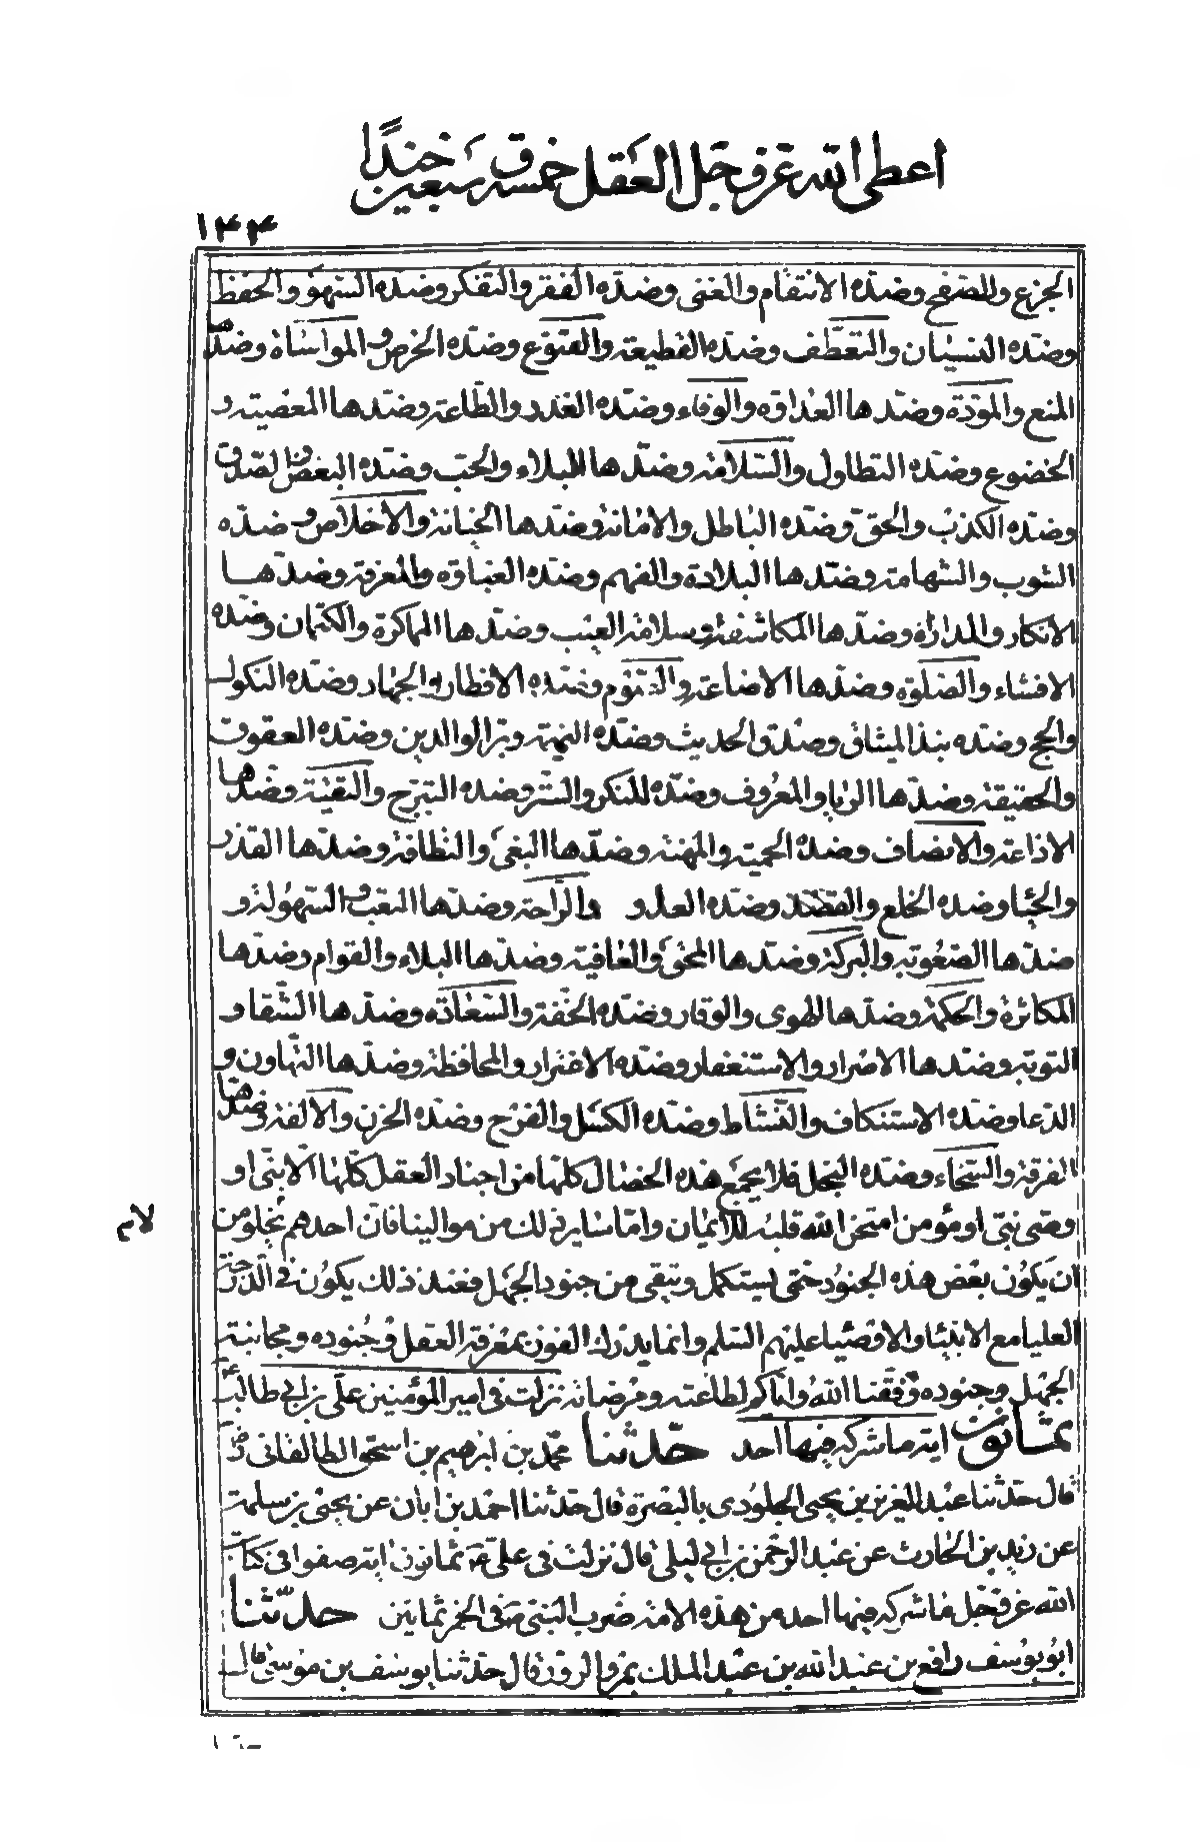 اعطى الله عز و جل العقل خمسة و سبعين جندا
١٣٤
الجزع والصفح وضده الانتقام والغنى وضده الفقر والتفكر وضده السهو والحفظ
وضده النسيان والتعطف وضده القطيعة والقنوع وضده الحرص والمواساة وضدها
المنع والمودة وضدها العداوة والوفاء وضده الغدر والطاعة وضدها المعصية و
الخضوع وضده التطاول والسلامة وضدها البلاء والحب وضده البغض والصدق
وضده الكذب والحق وضده الباطل والامانة وضدها الخيانة والاخلاص وضده
الشوب والشهامة وضدها البلادة والفهم وضده الغباوة والمعرفة وضدها
الانكار والمداراة وضدها المكاشفة وسلامة الغيب وضدها المماكرة والكتمان وضده
الافشاء والصلوة وضدها الاضاعة والصوم وضده الافطار والجهاد وضده النكول
والحج وضده نبذ الميثاق وصدق الحديث وضده النميمة وبر الوالدين وضده العقوق
والحقيقة وضدها الريا والمعروف وضده المنكر والستر وضده التبرج والتقية وضدها
الاذاعة والانصاف وضده الحمية والمهنة وضدها البغى والنظافة وضدها القذر
والحيا وضده الخلع والقصد وضده العدو والراحة وضدها التعب والسهولة و
ضدها الصعوبة والبركة وضدها المحق والعافية وضدها البلاء والقوام وضدها
المكاثرة والحكمة وضدها الهوى والوقار وضده الخفة والسعادة وضدها الشقا و
التوبة وضدها الاصرار والاستغفار وضده الاغترار والمحافظة وضدها التهاون و
الدعا وضده الاستنكاف والنشاط وضده الكسل والفرح وضده الحزن والالفة وضدها
الفرقة والسخاء وضده البخل فلا يجمع هذه الخصال كلها من اجناد العقل كلها الا نبى او
وصى نبى او مؤمن امتحن الله قلبه للايمان واما ساير ذلك من موالينا فان احدهم لا يخلو من
ان يكون بعض هذه الجنود حتى يستكمل ويتقى من جنود الجهل فعند ذلك يكون فى الدرجة
العليا مع الانبيا والاوصيا عليهم السلم وانما يدرك الفوز بمعرفة العقل وجنوده ومجانبة
الجهل وجنوده وفقنا الله واياكم لطاعته ومرضاته نزلت فى امير المؤمنين على بن ابى طالب
ثمانون اية ما شركه فيها احد حدثنا محمد بن ابرهيم بن اسحق الطالقانى رض
قال حدثنا عبد العزيز بن يحيى الجلودى بالبصرة قال حدثنا احمد بن ابان عن يحيى بن سلمة
عن زيد بن الحارث عن عبد الرحمن بن ابى ليلى قال نزلت فى على ع ثمانون اية صفوا فى كتاب
الله عز وجل ما شركه فيها احد من هذه الامة ضرب النبى ص فى الخمر ثمانين حدثنا
ابو يوسف رافع بن عبد الله بن عبد الملك بمرو الروذ قال حدثنا يوسف بن موسى قال